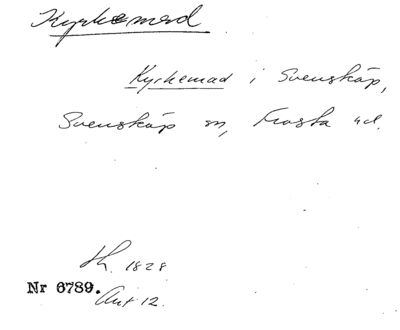 Kyrkemad
Kyrkemad i Svensköp,
Svensköp sn, Frosta hd.
Lh. 1828
Nr 6789.
Akt 12.